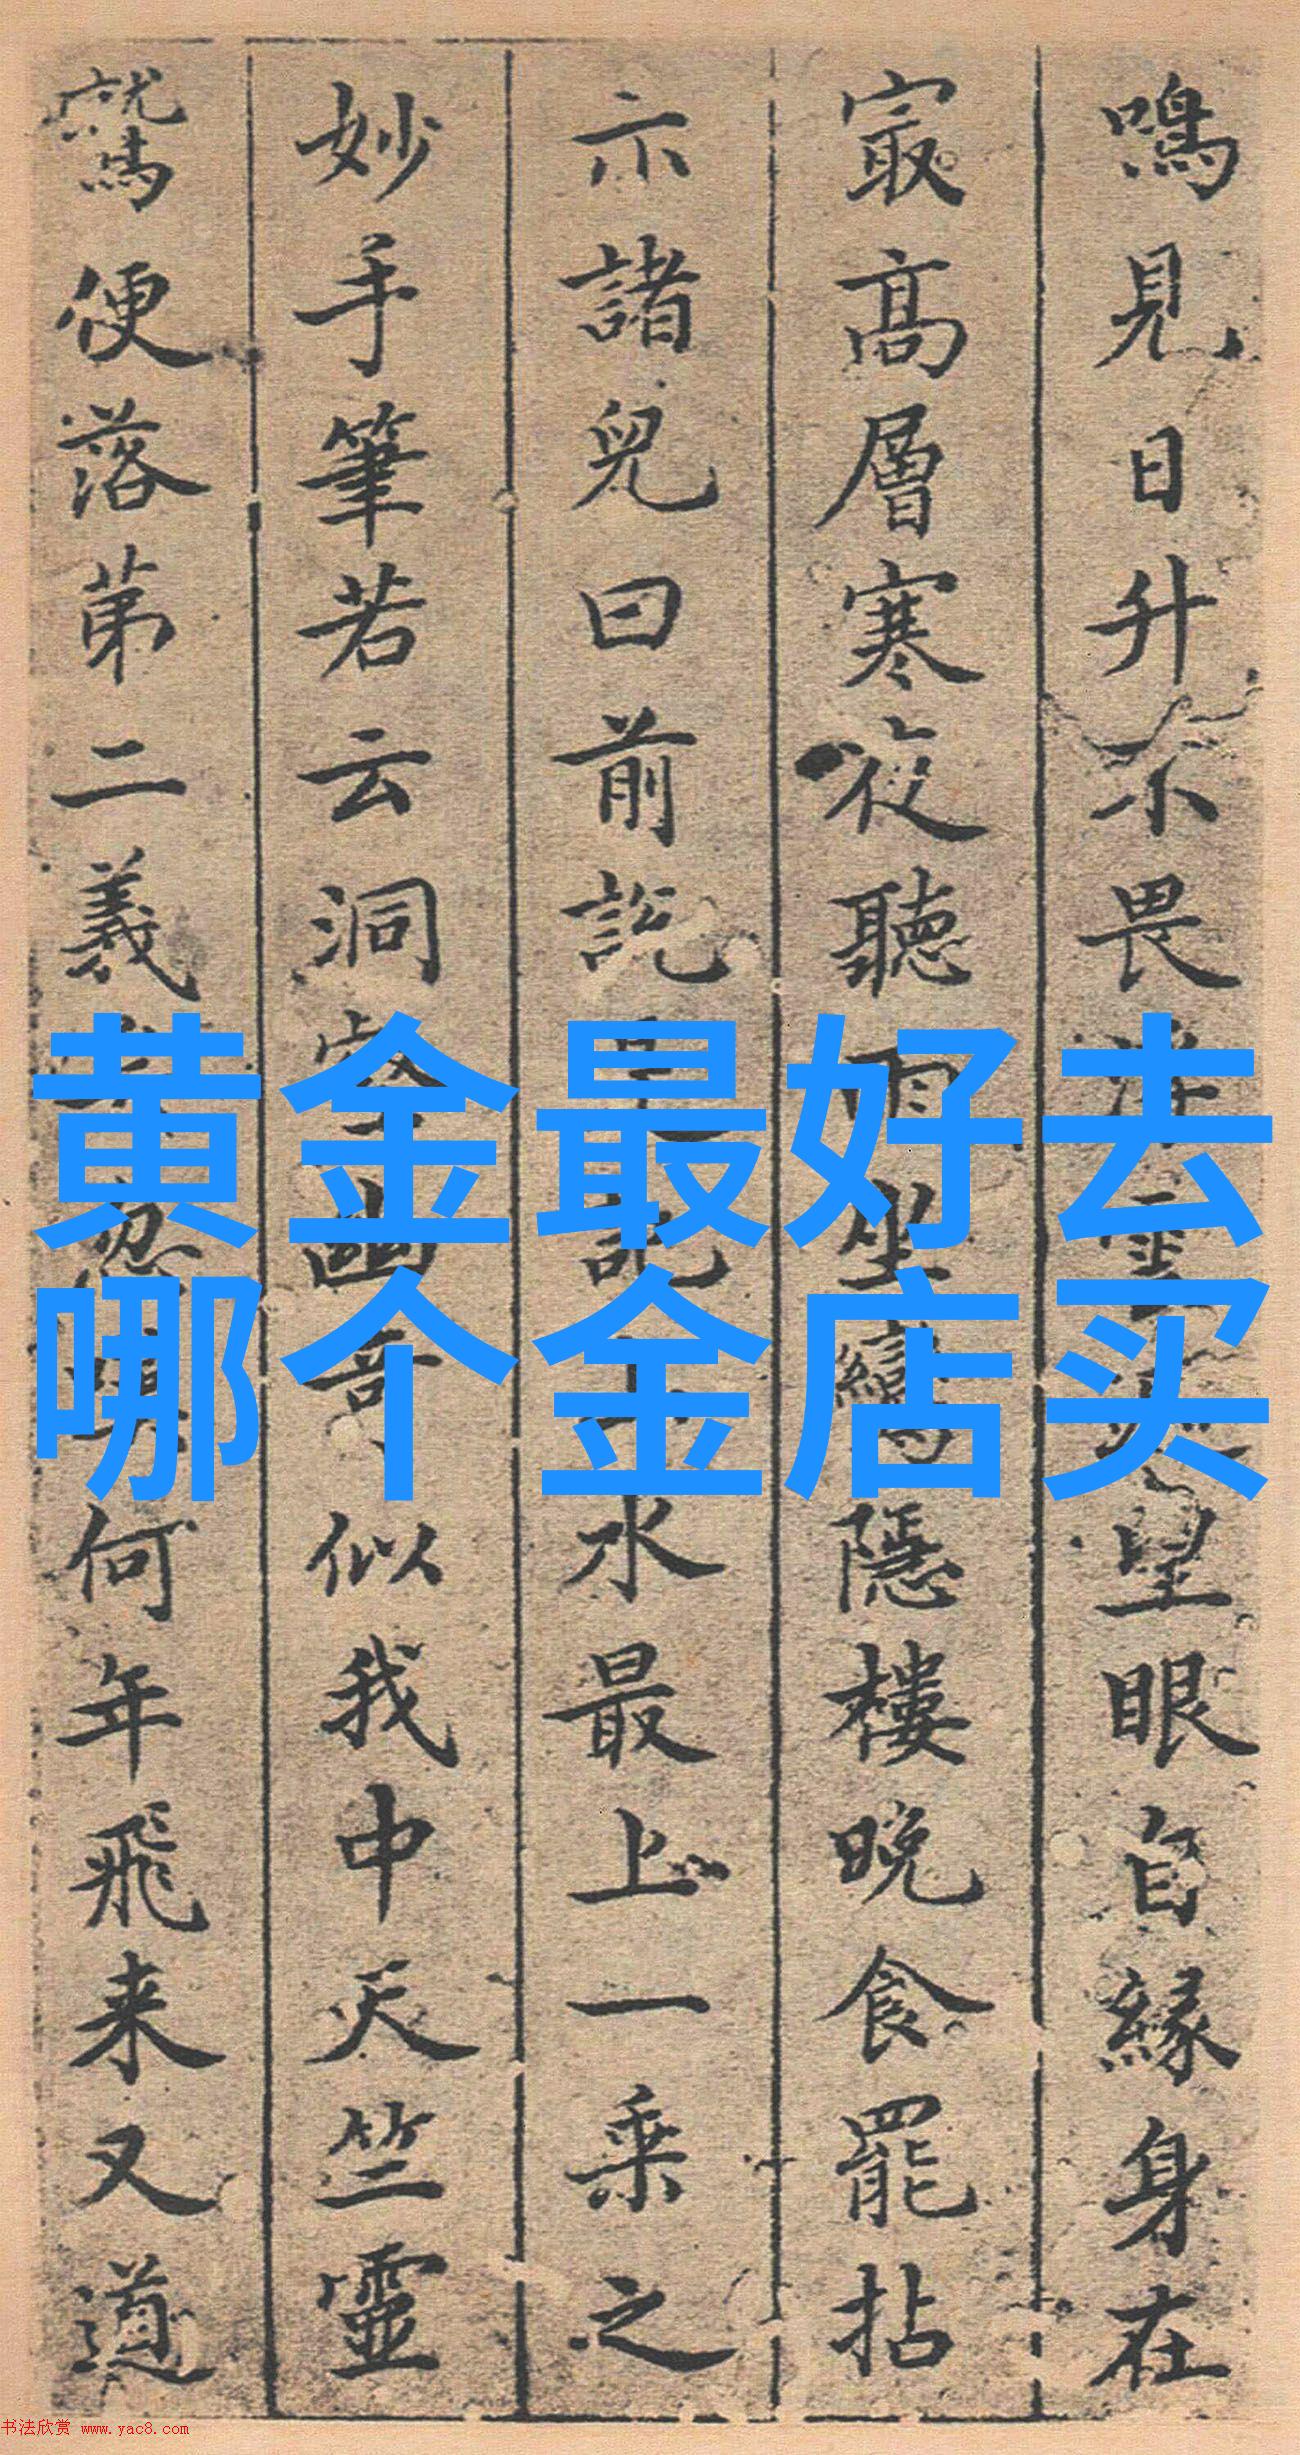 鳴見日升不畏浮雲遮望眼自緣身在
寂高層寒夜聽雨坐鸞隱樓晚食罷拈
示諸兒曰前説 記山水最上一乘之
妙手筆若云洞 幽奇似我中天竺靈
鷲便落第二義 忽 何年飛来又道
黄金最好去
哪个金店买
书法欣赏 www.yac8.com